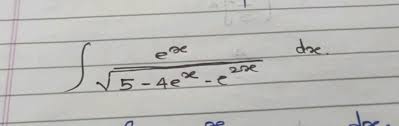 ∫ e^x / √(5 - 4e^x - e^{2x}) dx.